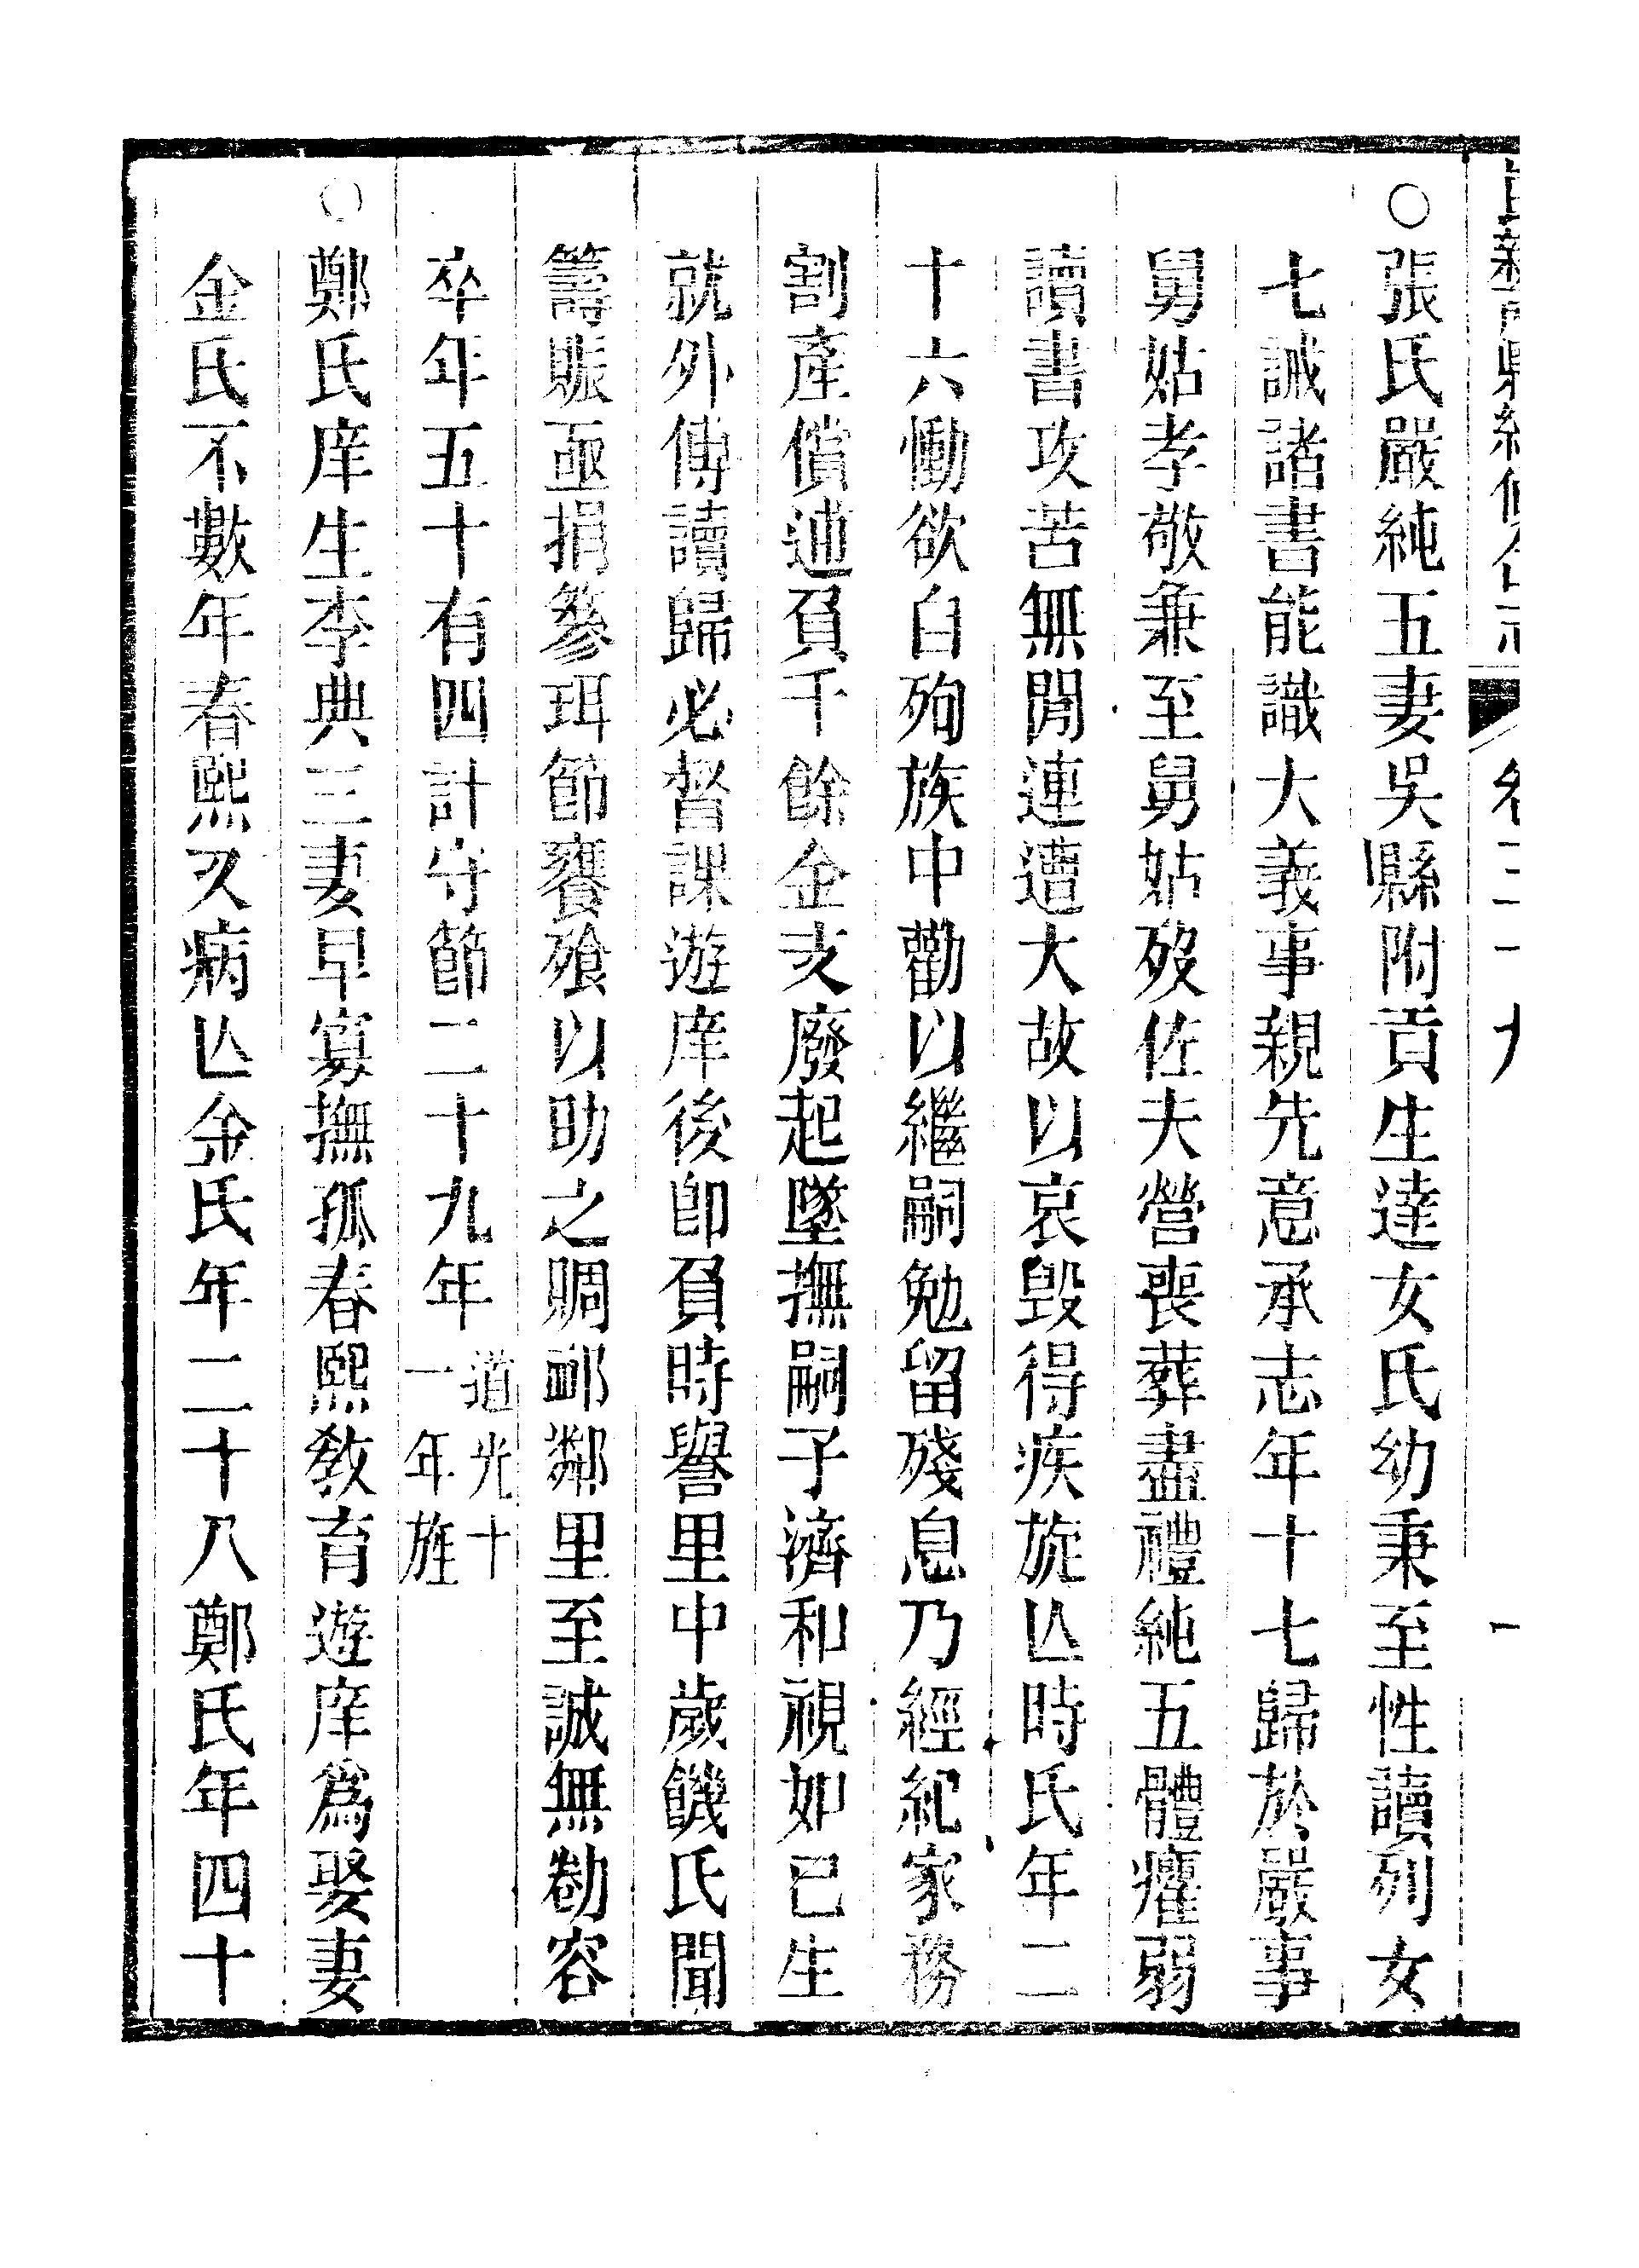 ○張氏嚴純五妻吳縣附貢生達女氏幼秉至性讀列女
七誡諸書能識大義事親先意承志年十七歸於嚴事
舅姑孝敬兼至舅姑歿佐夫營喪葬盡禮純五體癯弱
讀書攻苦無閒連遭大故以哀毀得疾旋亾時氏年二
十六慟欲自殉族中勸以繼嗣勉留殘息乃經紀家務
割產償逋負千餘金支廢起墜撫嗣子濟和視如已生
就外傅讀歸必督課遊庠後卽負時譽里中歲饑氏聞
籌賑亟捐簪珥節饔飧以助之賙卹鄰里至誠無勌容
卒年五十有四計守節二十九年道光十
一年旌
○鄭氏庠生李典三妻早寡撫孤春熙敎育遊庠爲娶妻
金氏不數年春熙又病亾金氏年二十八鄭氏年四十